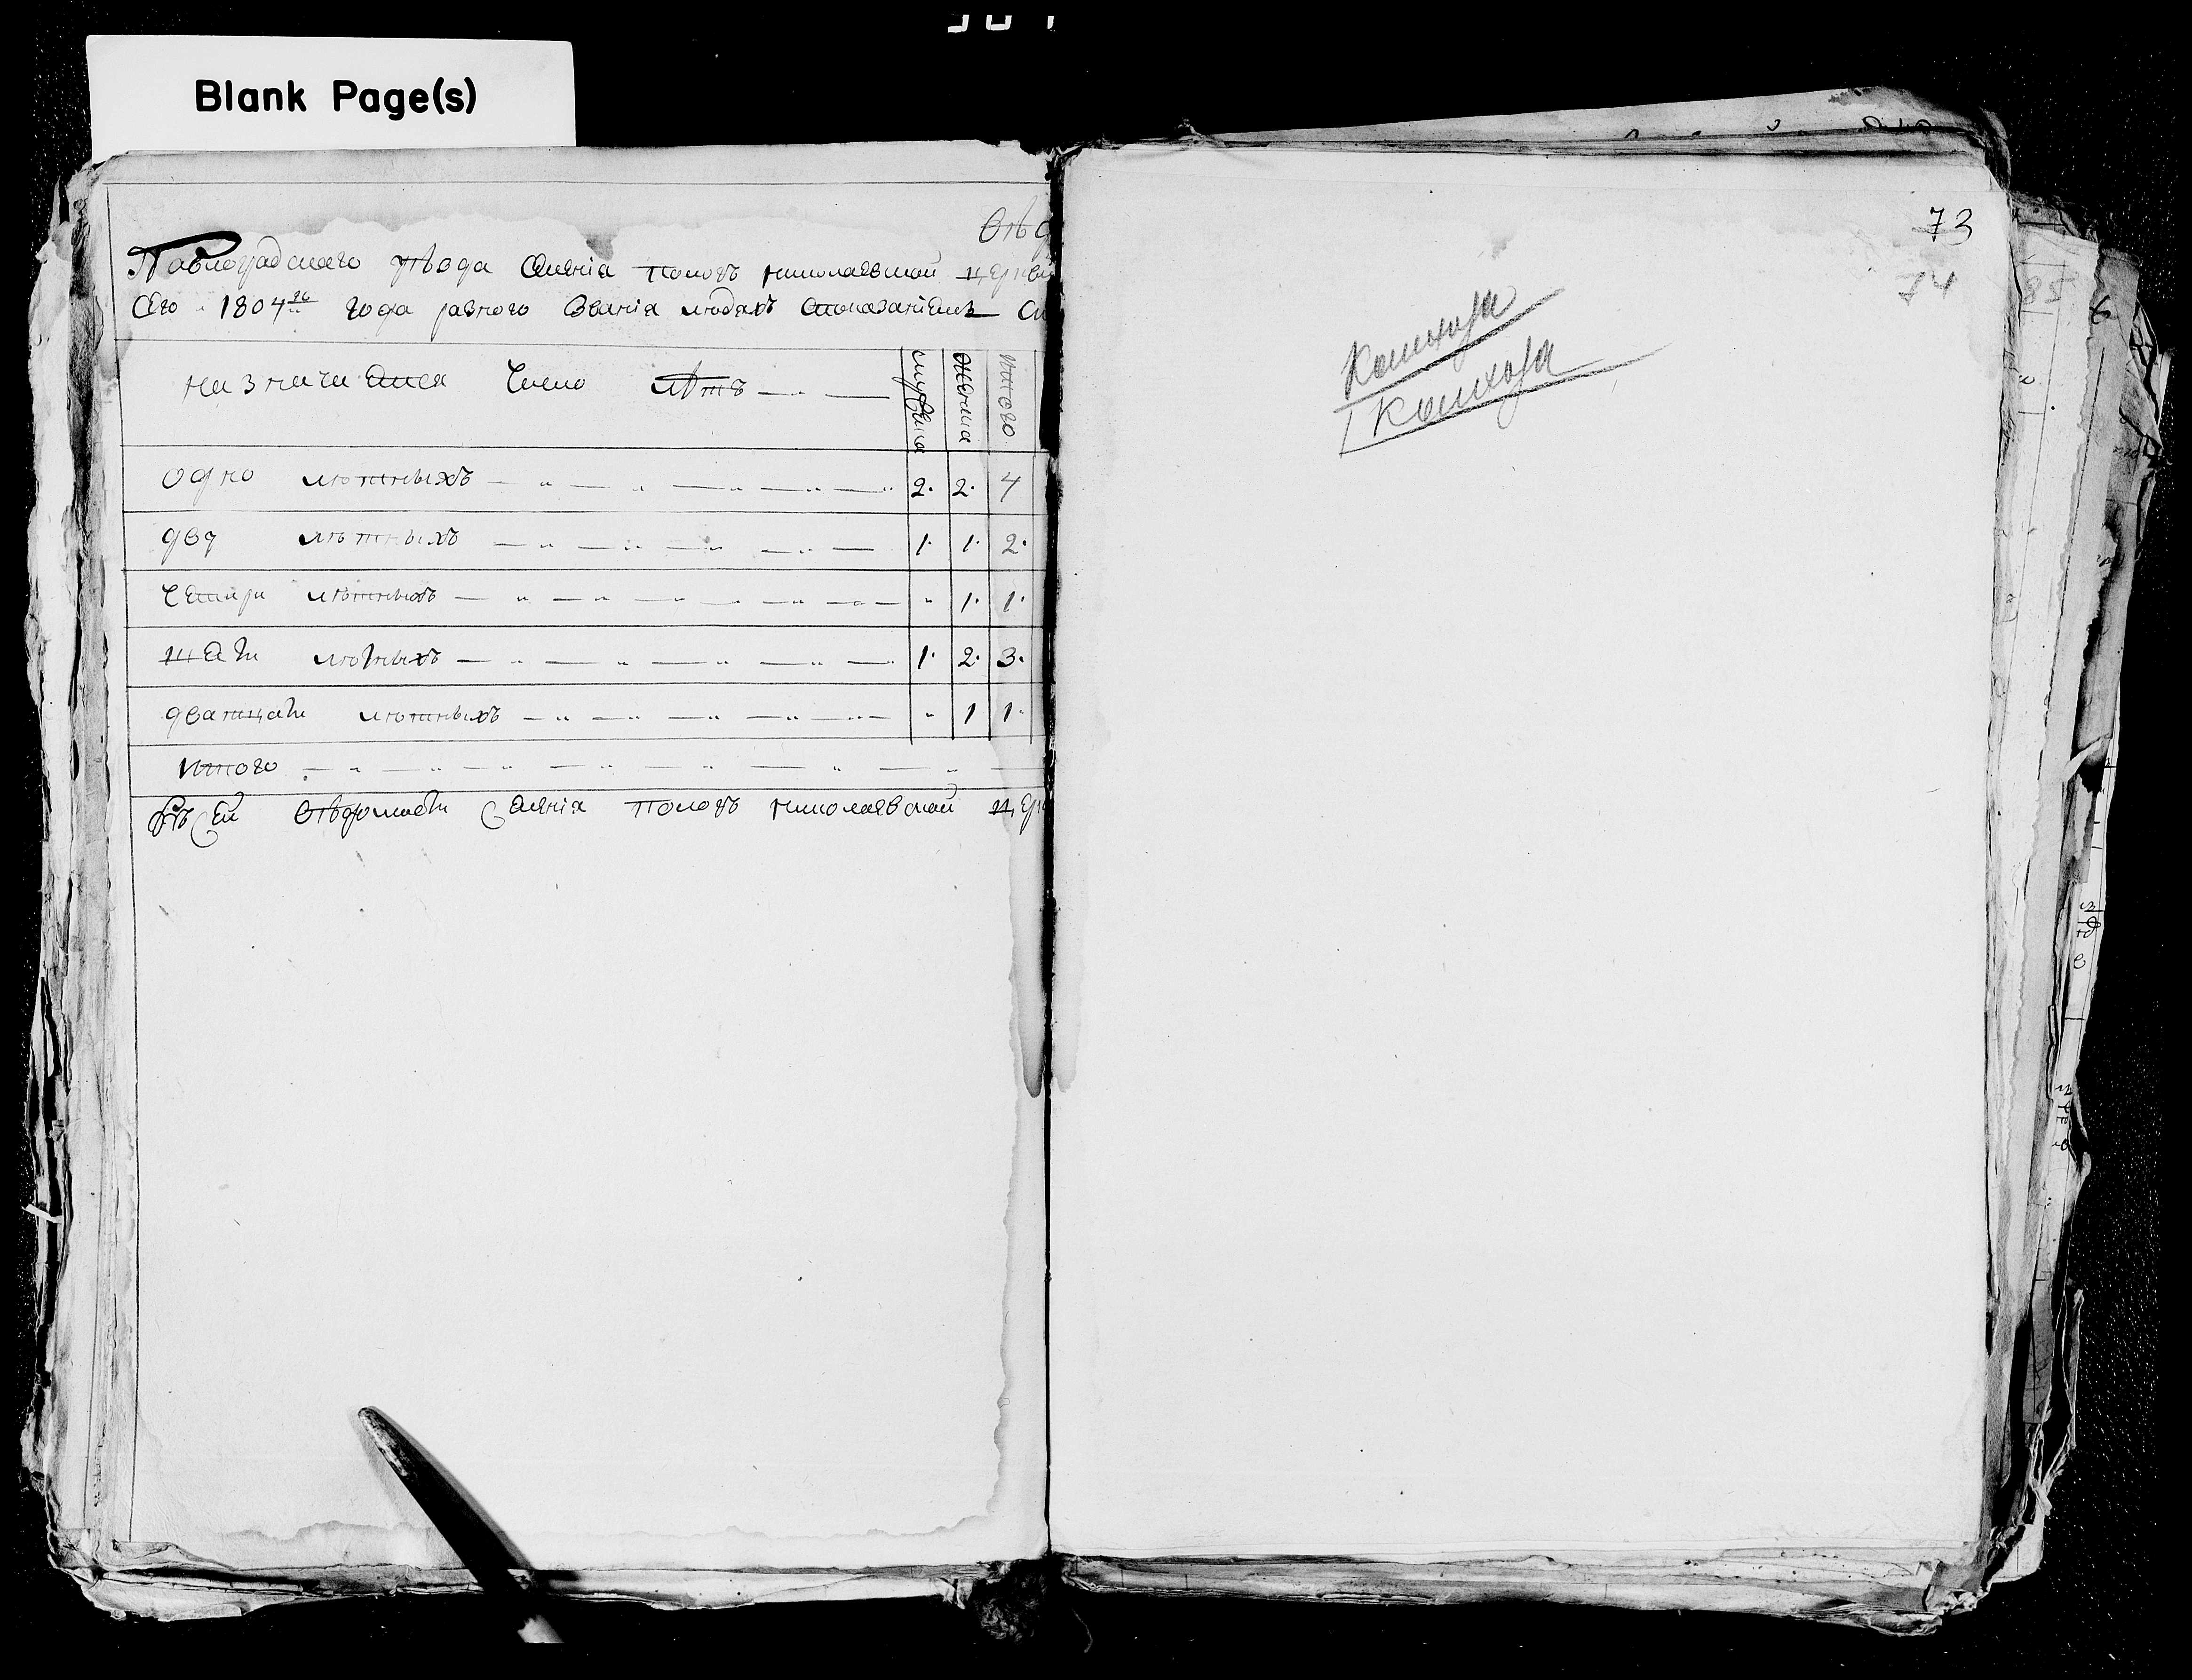 Blank Page(s)
Вѣд
Павлоградскаго уѣзда Селенія Пологъ николаевской церкви
Сего 1804го года разного Званія людяхъ Споказаніемъ
назначается Число лѣтъ
мужеска
женска
итого
одно лѣтныхъ 2. 2. 4
дву лѣтныхъ 1. 1. 2.
Четири лѣтныхъ " 1. 1.
лѣтныхъ 1. 2. 3.
дватцати лѣтныхъ " 1 1.
Итого
Къ Сей Вѣдомости Селенія Пологъ николаевской цер
73
74
85
6